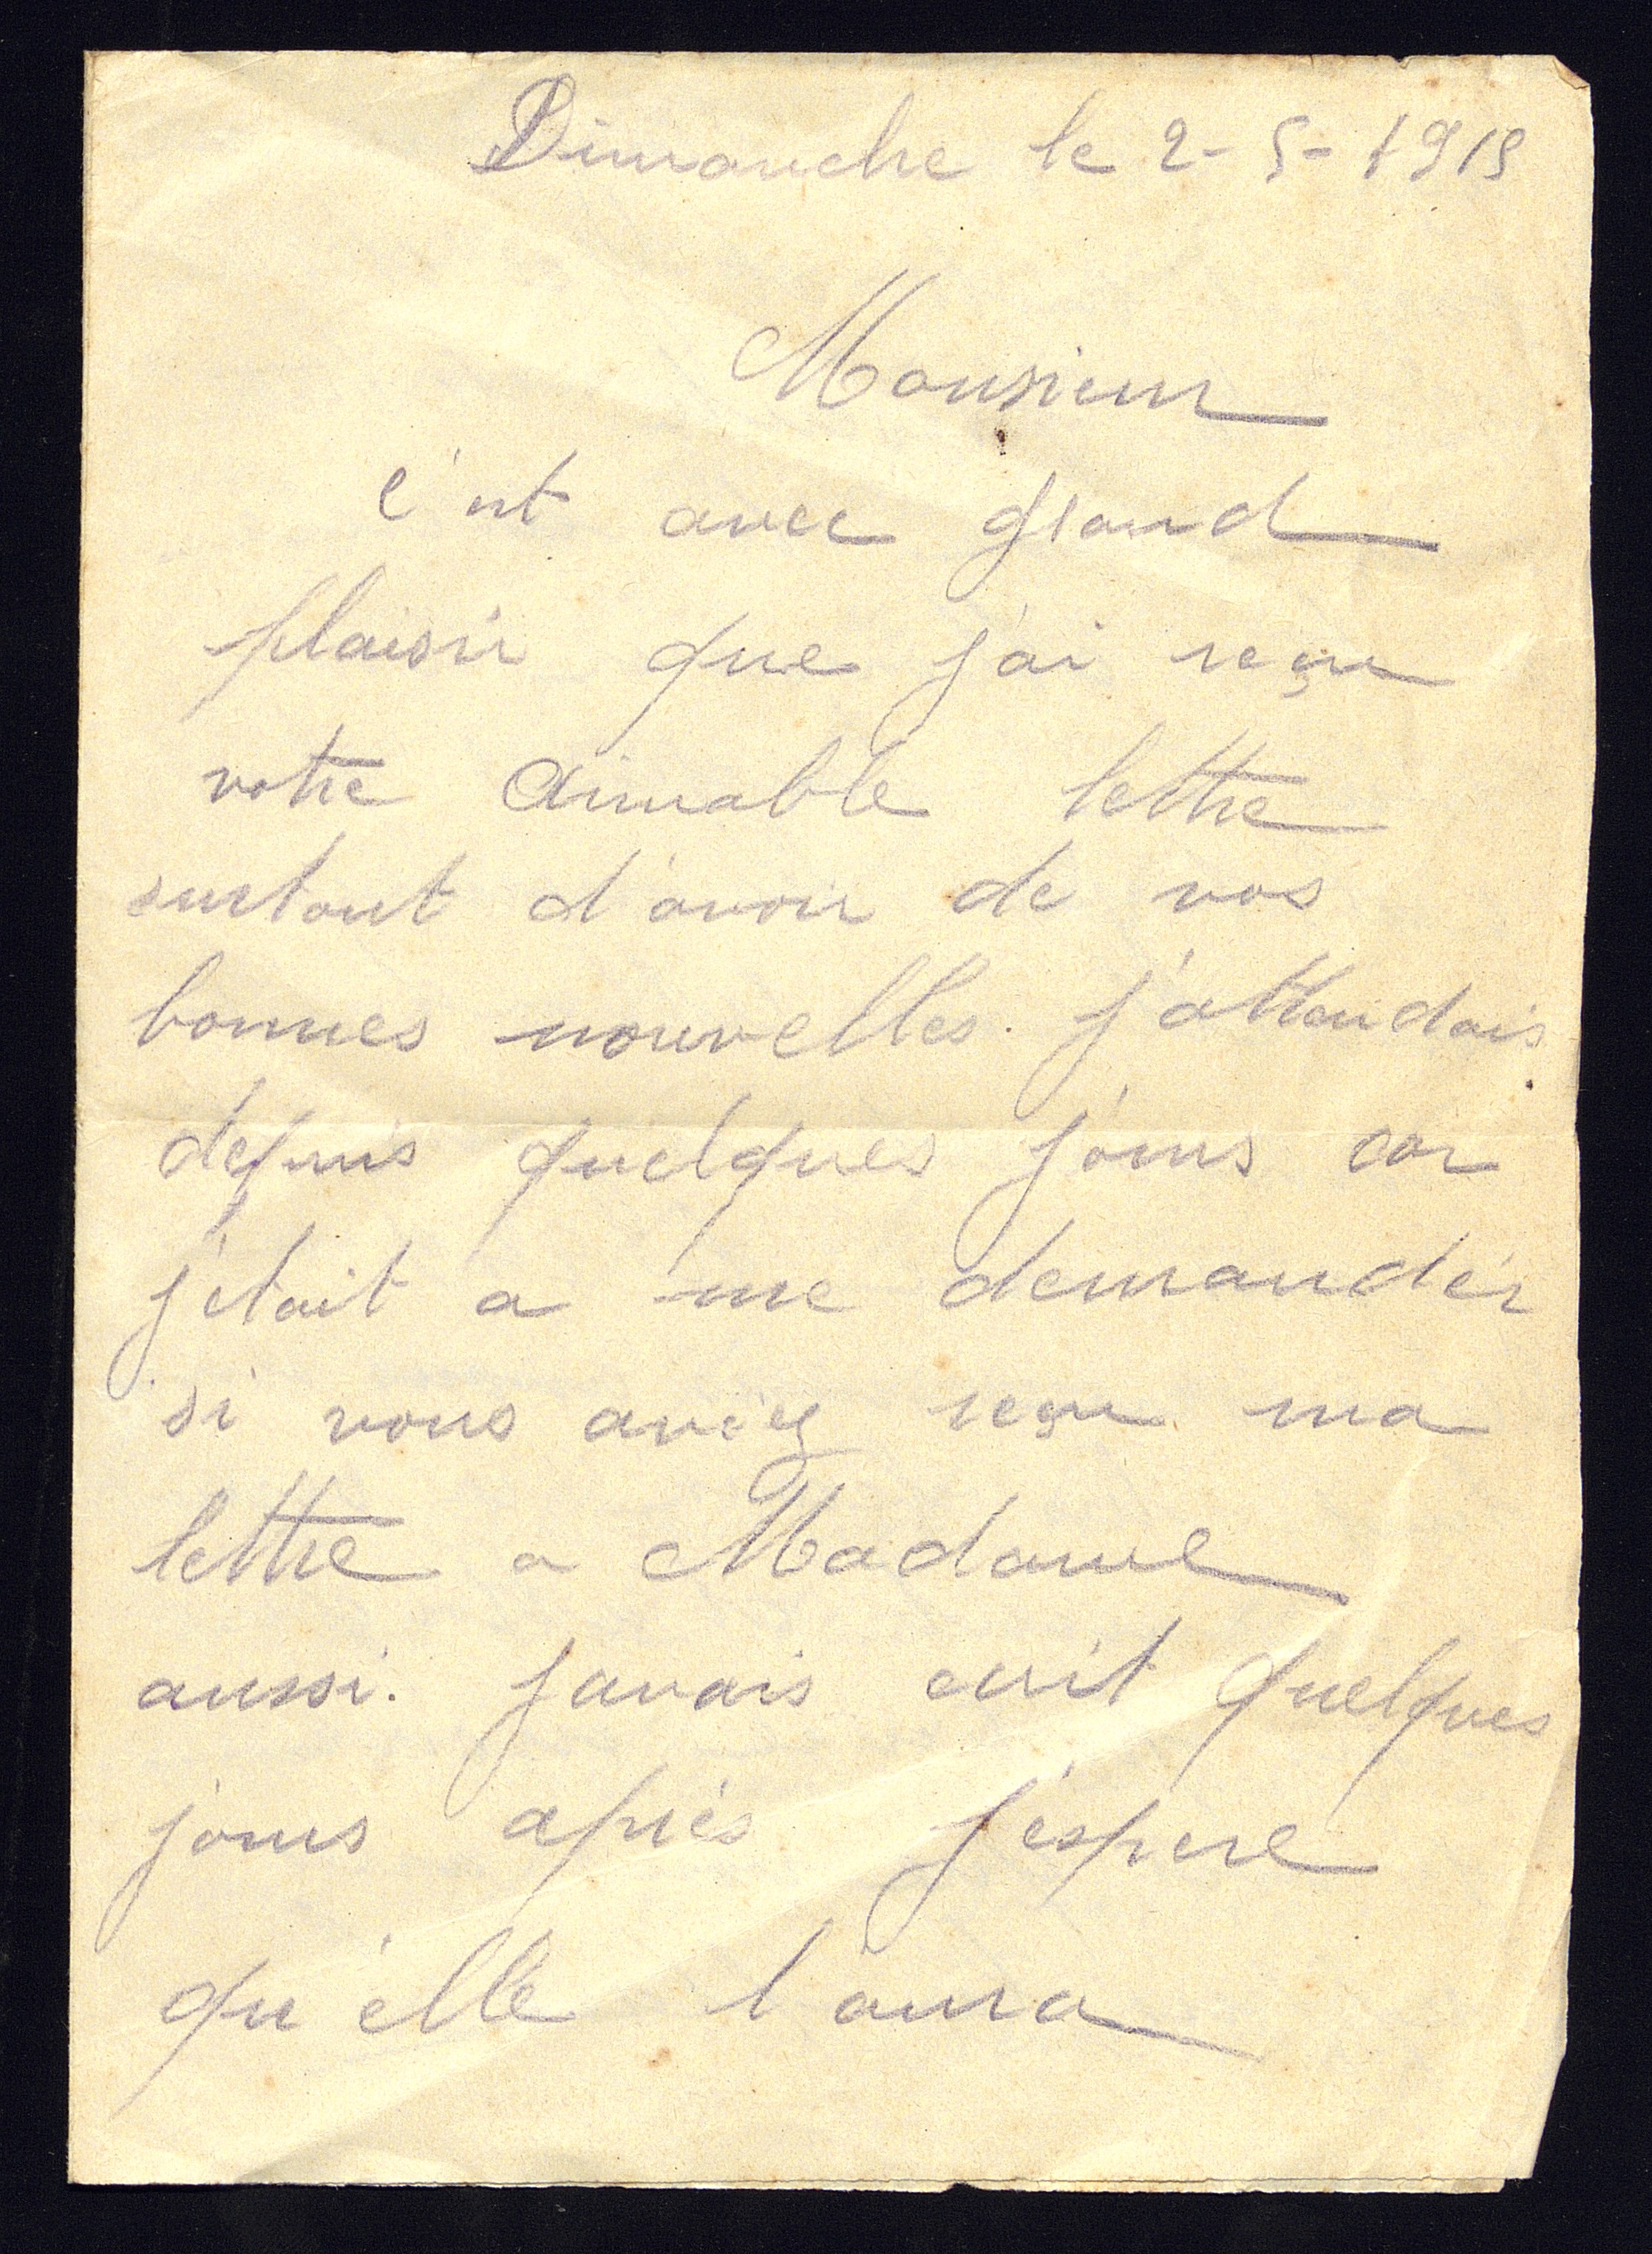 Dimanche le 2-5-1915
Monsieur
C'est avec grand
plaisir que j'ai reçu
votre aimable lettre
surtout d'avoir de vos
bonnes nouvelles. j'attendais
depuis quelques jours car
j'etait a me demander
si vous aviez reçu ma
lettre a Madame
aussi. javais ecrit quelques
jours après j'éspere
qu'elle l'aura